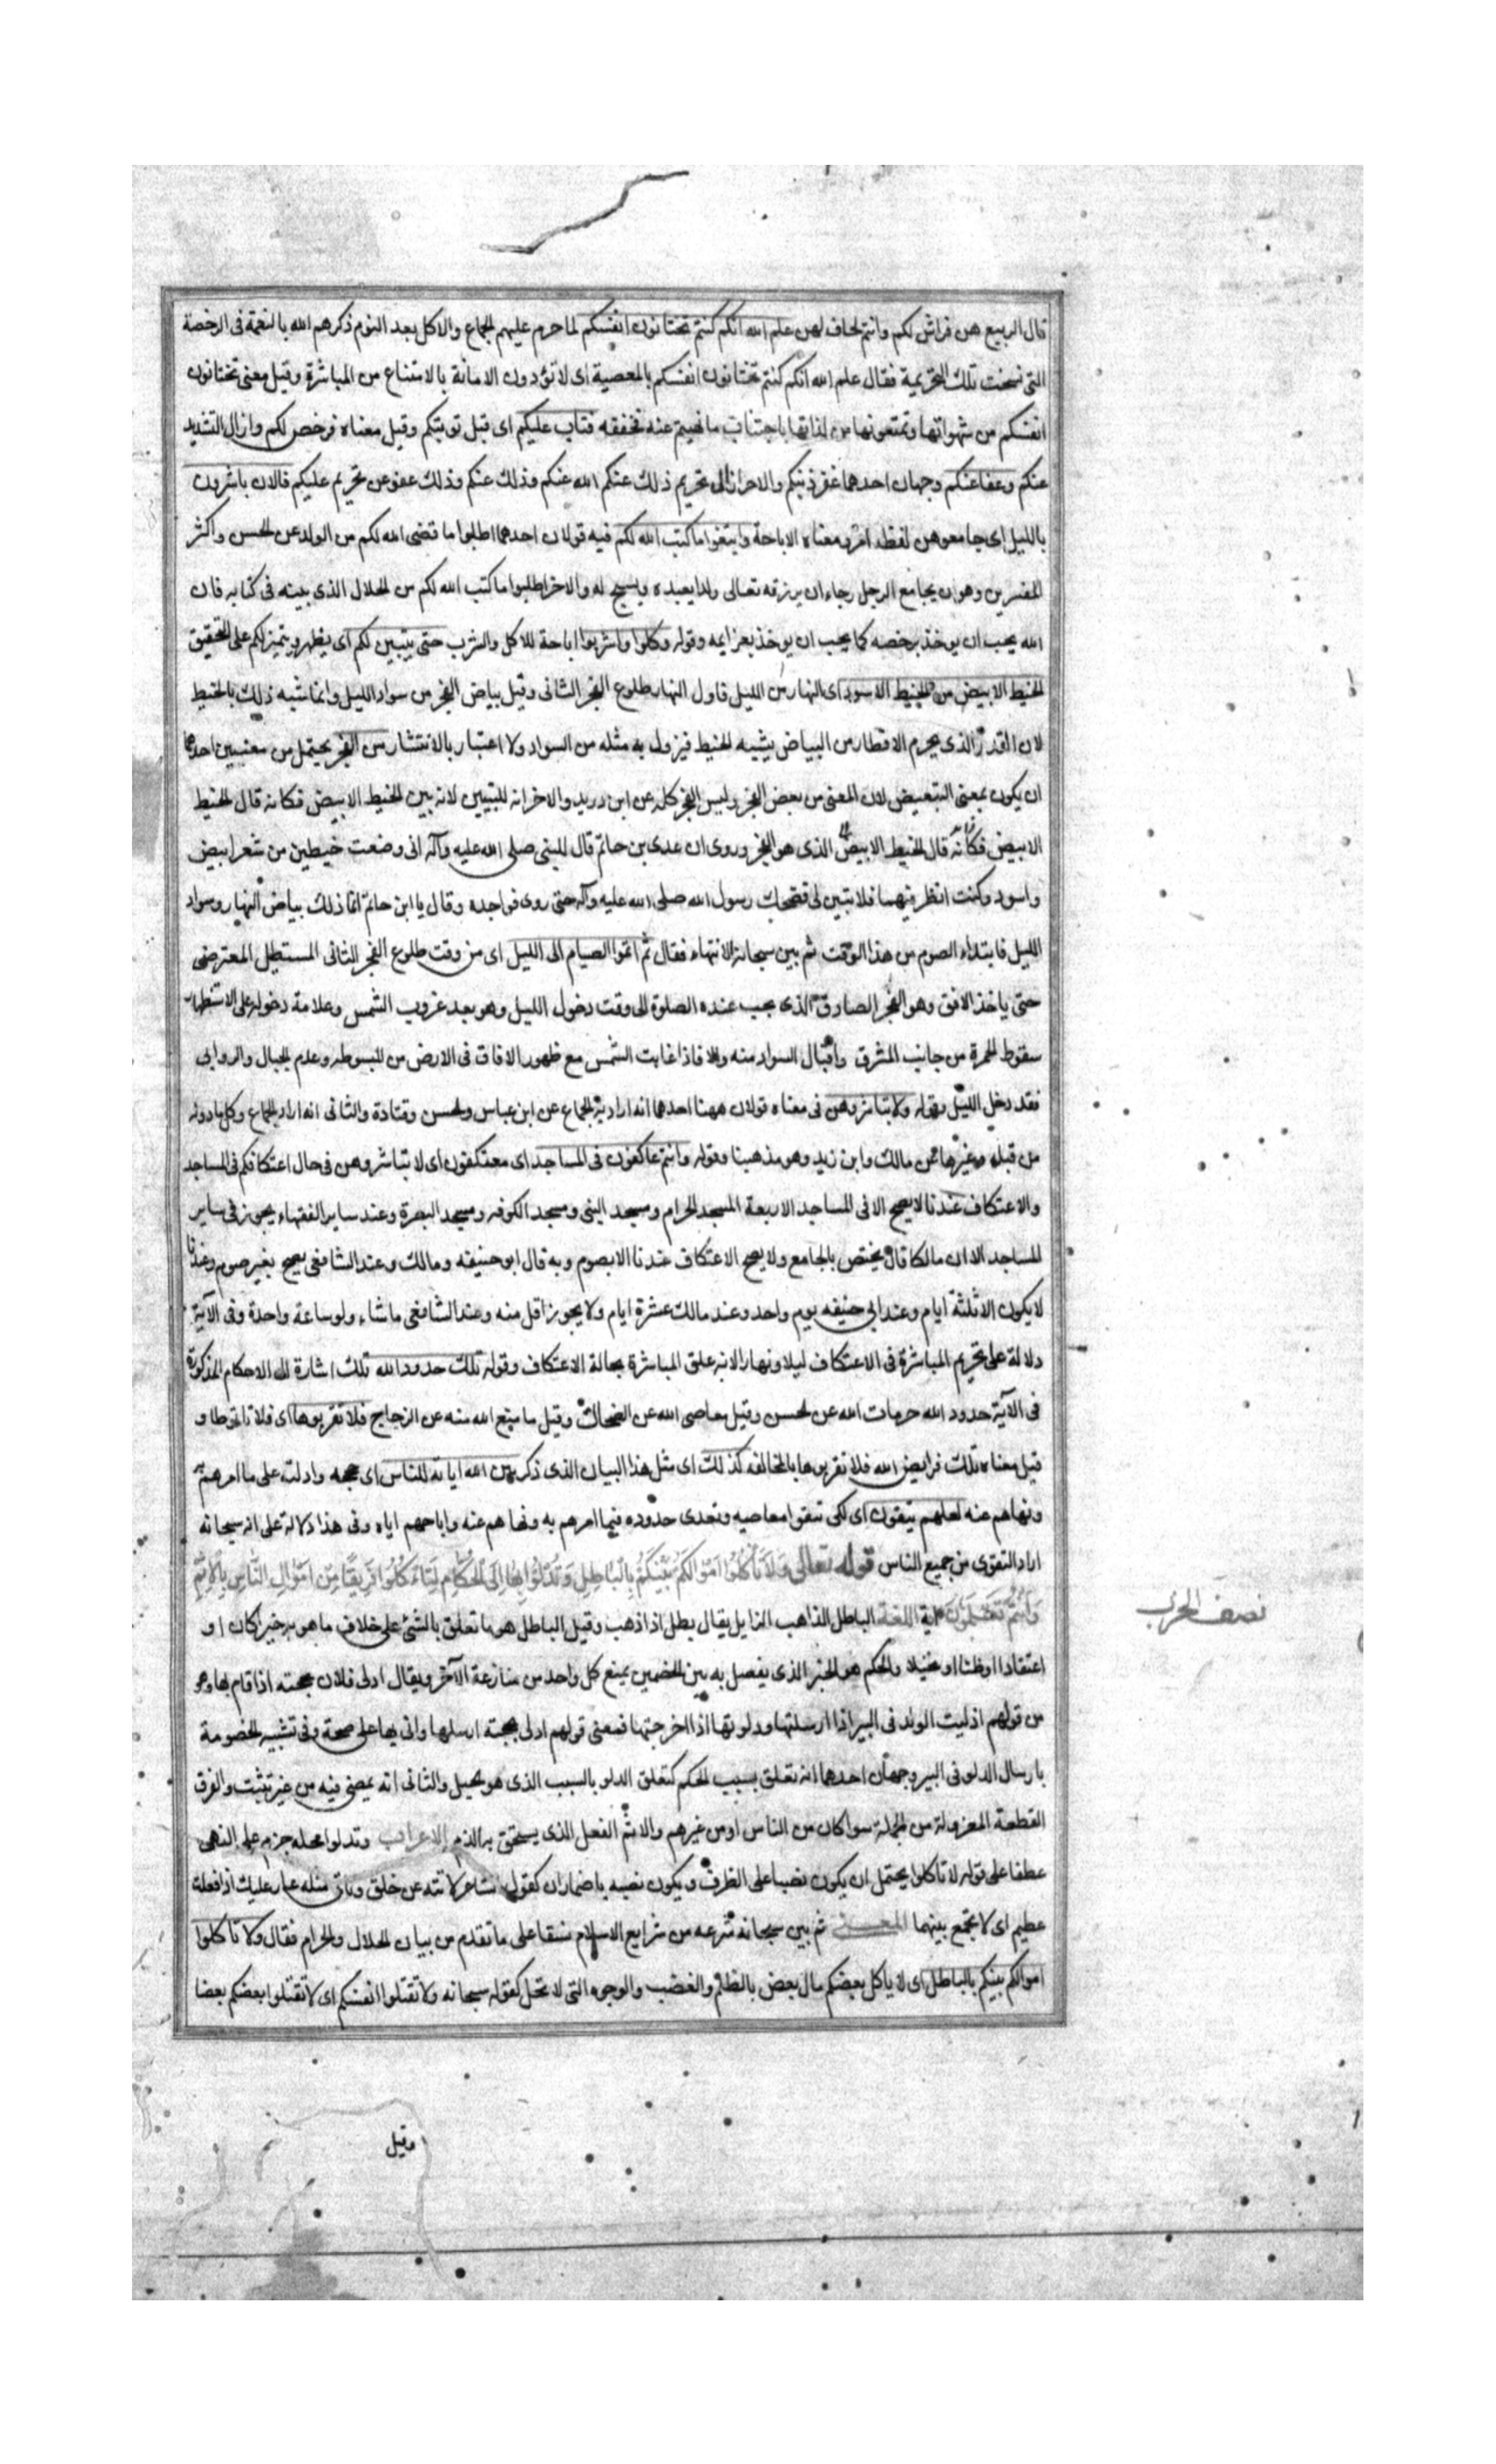 قال الربيع هن فراش لكم وانتم لحاف لهن علم الله انكم كنتم تختانون انفسكم لما حرم عليهم الجماع والاكل بعد النوم ذكرهم الله بالنعمة فى الرخصة
التى نسخت تلك التحريمة فقال علم الله انكم كنتم تختانون انفسكم بالمعصية اى لا تؤدون الامانة بالامتناع من المباشرة وقيل معنى تختانون
انفسكم من شهواتها وتمتعونها من لذاتها باجتناب ما نهيتم عنه فخففه فتاب عليكم اى قبل توبتكم وقيل معناه فرخص لكم وازال التشديد
عنكم وعفا عنكم وجهان احدهما غفر ذنبكم والاخر ازال تحريم ذلك عنكم الله عنكم وذلك عنكم وذلك عفو عن تحريم عليكم فالان باشروهن
بالليل اى جامعوهن لفظه امر ومعناه الاباحة وابتغوا ما كتب الله لكم فيه قولان احدهما اطلبوا ما قضى الله لكم من الولد عن الحسن واكثر
المفسرين وهو ان يجامع الرجل رجاء ان يرزقه تعالى ولدا يعبده ويسبح له والاخر اطلبوا ما كتب الله لكم من الحلال الذى بينه فى كتابه فان
الله يحب ان يوخذ برخصه كما يحب ان يوخذ بعزايمه وقوله وكلوا واشربوا اباحة للاكل والشرب حتى يتبين لكم اى يظهر ويتميز لكم على التحقيق
الخيط الابيض من الخيط الاسود اى النهار من الليل فاول النهار طلوع الفجر الثانى وقيل بياض الفجر من سواد الليل وانما شبه ذلك بالخيط
لان القدر الذى يحرم الافطار من البياض يشبه الخيط فيزول به مثله من السواد ولا اعتبار بالانتشار من الفجر يحتمل من معنيين احدهما
ان يكون بمعنى التبعيض لان المعنى من بعض الفجر وليس الفجر كله عن ابن دريد والاخر انه للتبيين لانه بين الخيط الابيض فكانه قال الخيط
الابيض فكانه قال الخيط الابيض الذى هو الفجر وروى ان عدى بن حاتم قال للنبى صلى الله عليه وآله انى وضعت خيطين من شعر ابيض
واسود وكنت انظر فيهما فلا يتبين لى فضحك رسول الله صلى الله عليه وآله حتى روى نواجده وقال يا ابن حاتم انما ذلك بياض النهار وسواد
الليل فابتداء الصوم من هذا الوقت ثم بين سبحانه الانتهاء فقال ثم اتموا الصيام الى الليل اى من وقت طلوع الفجر الثانى المستطيل المعترض
حتى ياخذ الافق وهو الفجر الصادق الذى يجب عنده الصلوة الى وقت دخول الليل وهو بعد غروب الشمس وعلامة دخوله على الاستظهار
سقوط الحمرة من جانب المشرق واقبال السواد منه والا فاذا غابت الشمس مع ظهور الافاق فى الارض من المبسوطه وعدم الجبال والروابى
فقد دخل الليل وقوله ولا تباشروهن فى معناه قولان ههنا احدهما انه اراد به الجماع عن ابن عباس والحسن وقتادة والثانى انه اراد الجماع وكل ما دونه
من قبله وغيرها عن مالك وابن زيد وهو مذهبنا وقوله وانتم عاكفون فى المساجد اى معتكفون اى لا تباشروهن فى حال اعتكافكم فى المساجد
والاعتكاف عندنا لا يصح الا فى المساجد الاربعة المسجد الحرام ومسجد النبى ومسجد الكوفه ومسجد البصرة وعند ساير الفقهاء يجوز فى ساير
المساجد الا ان مالكا قال يختص بالجامع ولا يصح الاعتكاف عندنا الا بصوم وبه قال ابو حنيفه ومالك وعند الشافعى يصح بغير صوم وعندنا
لا يكون الا ثلثة ايام وعند ابى حنيفه يوم واحد وعند مالك عشرة ايام ولا يجوز اقل منه وعند الشافعى ما شاء ولو ساعة واحدة وفى الآية
دلالة على تحريم المباشرة فى الاعتكاف ليلا ونهارا لانه علق المباشرة بحالة الاعتكاف وقوله تلك حدود الله تلك اشارة الى الاحكام المذكورة
فى الآية حدود الله حرمات الله عن الحسن وقيل معاصى الله عن الضحاك وقيل ما منع الله منه عن الزجاج فلا تقربوها اى فلا تاتوها و
قيل معناه تلك فرايض الله فلا تقربوها بالمخالفه كذلك اى مثل هذا البيان الذى ذكر يبين الله اياته للناس اى حججه وادلته على ما امرهم به
ونهاهم عنه لعلهم يتقون اى لكى تتقوا معاصيه وتعدى حدوده فيما امرهم به ونهاهم عنه واباحهم اياه وفى هذا دلالة على انه سبحانه
اراد التقوى من جميع الناس قوله تعالى ولا تأكلوا اموالكم بينكم بالباطل وتدلوا بها الى الحكام لتأكلوا فريقا من اموال الناس بالاثم
وانتم تعلمون آية اللغة الباطل الذاهب الزايل يقال بطل اذا ذهب وقيل الباطل هو ما تعلق بالشئ على خلاف ما هو به خبرا كان او
اعتقادا او ظنا او تخيلا والحكم هو الخبر الذى يفصل به بين الخصمين يمنع كل واحد من منازعة الآخر ويقال ادلى فلان بحجته اذا قام بها وهو
من قولهم ادليت الولد فى البير اذا ارسلتها ودلوتها اذا اخرجتها فمعنى قولهم ادلى بحجته ارسلها واتى بها على صحة وفى تشبيه الخصومة
بارسال الدلو فى البير وجهان احدهما انه تعلق بسبب الحكم كتعلق الدلو بالسبب الذى هو الحبل والثانى انه يمضى فيه من غير تثبت والفرق
القطعة المعزولة من الجملة سوا كان من الناس او من غيرهم والاثم الفعل الذى يستحق به الذم الاعراب وتدلوا محله جزم على النهى
عطفا على قوله لا تاكلوا يحتمل ان يكون نصبا على الظرف ويكون نصبه باضمار ان كقول شاعر لا تنه عن خلق وتاتى مثله عار عليك اذا فعلت
عظيم اى لا تجمع بينهما المعنى ثم بين سبحانه شرعه من شرايع الاسلام نسقا على ما تقدم من بيان الحلال والحرام فقال ولا تأكلوا
اموالكم بينكم بالباطل اى لا ياكل بعضكم مال بعض بالظلم والغصب والوجوه التى لا تحل كقوله سبحانه ولا تقتلوا انفسكم اى لا تقتلوا بعضكم بعضا
نصف الحزب
وقيل